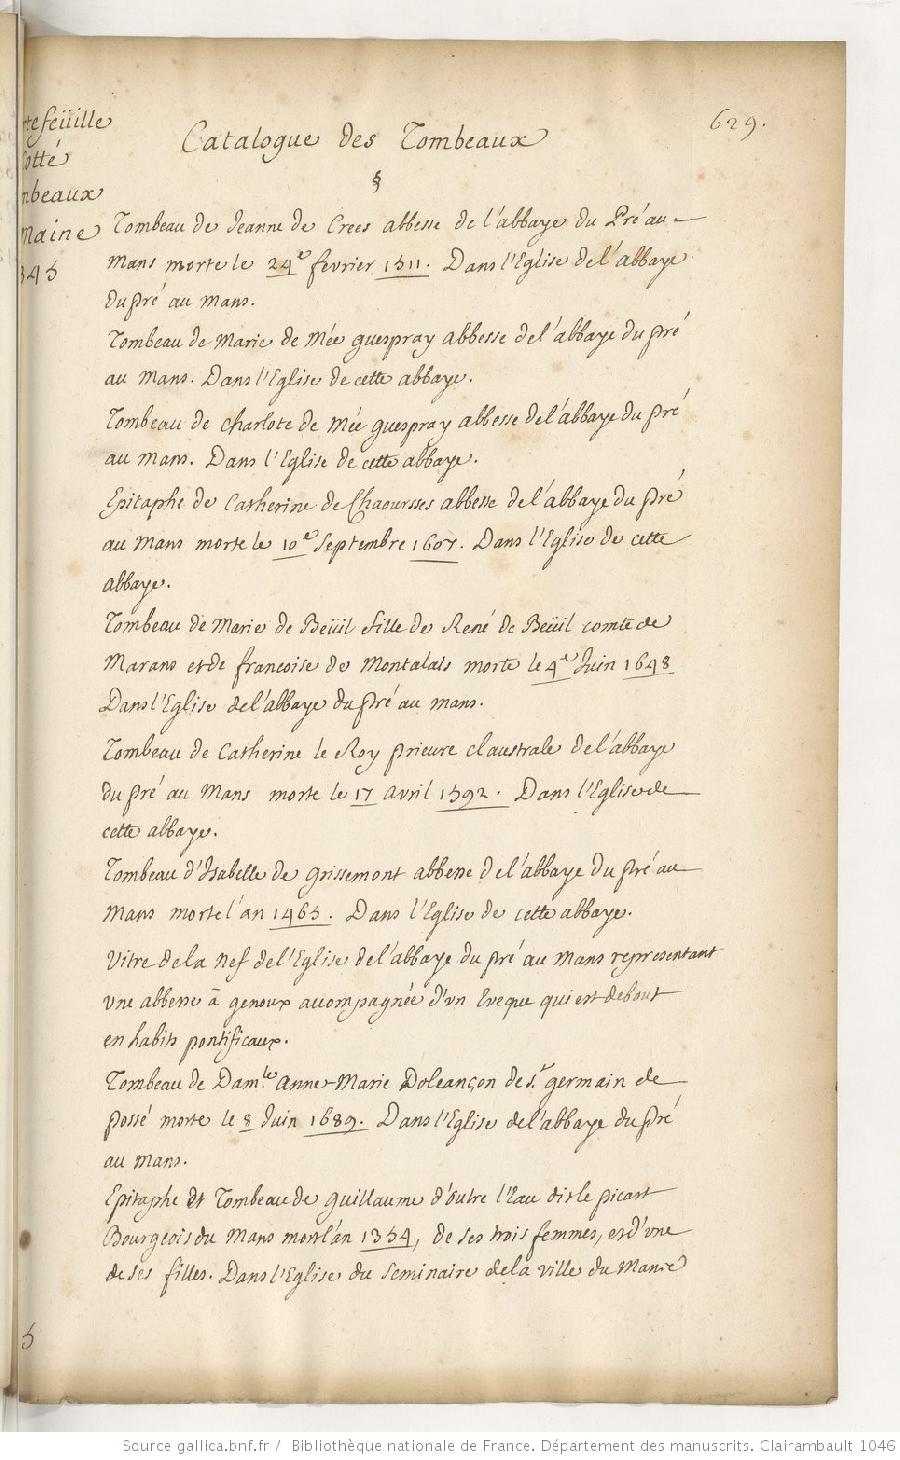 629.
tefeüille
Cotté
mbeaux
Maine
345
Catalogue des Tombeaux
§
Tombeau de Jeanne de Crees abbesse de l'abbaye du Pré au
Mans morte le 24e fevrier 1511. Dans l'Eglise de l'abbaye
du pré au Mans.
Tombeau de Marie de Mée guespray abbesse de l'abbaye du pré
au Mans. Dans l'Eglise de cette abbaye.
Tombeau de Charlote de Mée guespray abbesse de l'abbaye du pré
au Mans. Dans l'Eglise de cette abbaye.
Epitaphe de Catherine de Chaoursses abbesse de l'abbaye du pré
au Mans morte le 10e Septembre 1607. Dans l'Eglise de cette
abbaye.
Tombeau de Marie de Beüil fille de René de Beüil comte de
Marans et de francoise de Montalais morte le 4e Juin 1648
Dans l'Eglise de l'abbaye du pré au Mans.
Tombeau de Catherine le Roy prieure claustrale de l'abbaye
du pré au Mans morte le 17 avril 1592. Dans l'Eglise de
cette abbaye.
Tombeau d'Isabelle de Grissemont abbesse de l'abbaye du pré au
Mans morte l'an 1465. Dans l'Eglise de cette abbaye.
Vitre de la Nef de l'Eglise de l'abbaye du pré au Mans representant
vne abbesse à genoux accompagnée d'vn Eveque qui est debout
en habits pontificaux.
Tombeau de Damle Anne-Marie Doleançon de St germain de
possé morte le 8 Juin 1689. Dans l'Eglise de l'abbaye du pré
au Mans.
Epitaphe et Tombeau de Guillaume d'outre l'Eau dit le picart
Bourgeois du Mans mort l'an 1354, de ses trois femmes, et d'vne
de ses filles. Dans l'Eglise du Seminaire de la ville du Mans
5
Source gallica.bnf.fr / Bibliothèque nationale de France. Département des manuscrits. Clairambault 1046